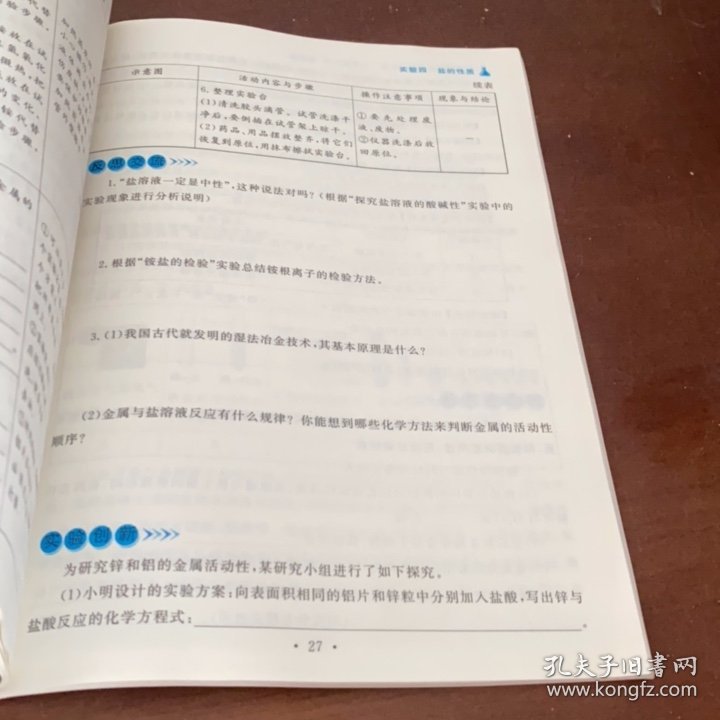 实验四 盐的性质
续表
示意图
活动内容与步骤
操作注意事项
现象与结论
6.整理实验台
(1)清洗胶头滴管。试管洗涤干
净后，要倒插在试管架上晾干。
(2)药品、用品摆放整齐，将它们
恢复到原位，用抹布擦拭实验台。
①要先处理废
液、废物。
②仪器洗涤后放
回原位。
反思交流
1.“盐溶液一定显中性”，这种说法对吗？(根据“探究盐溶液的酸碱性”实验中的
实验现象进行分析说明)
2.根据“铵盐的检验”实验总结铵根离子的检验方法。
3.(1)我国古代就发明的湿法冶金技术，其基本原理是什么？
(2)金属与盐溶液反应有什么规律？你能想到哪些化学方法来判断金属的活动性
顺序？
实验创新
为研究锌和铝的金属活动性，某研究小组进行了如下探究。
(1)小明设计的实验方案：向表面积相同的铝片和锌粒中分别加入盐酸，写出锌与
盐酸反应的化学方程式：
。
·27·
孔夫子旧书网
www.kongfz.com